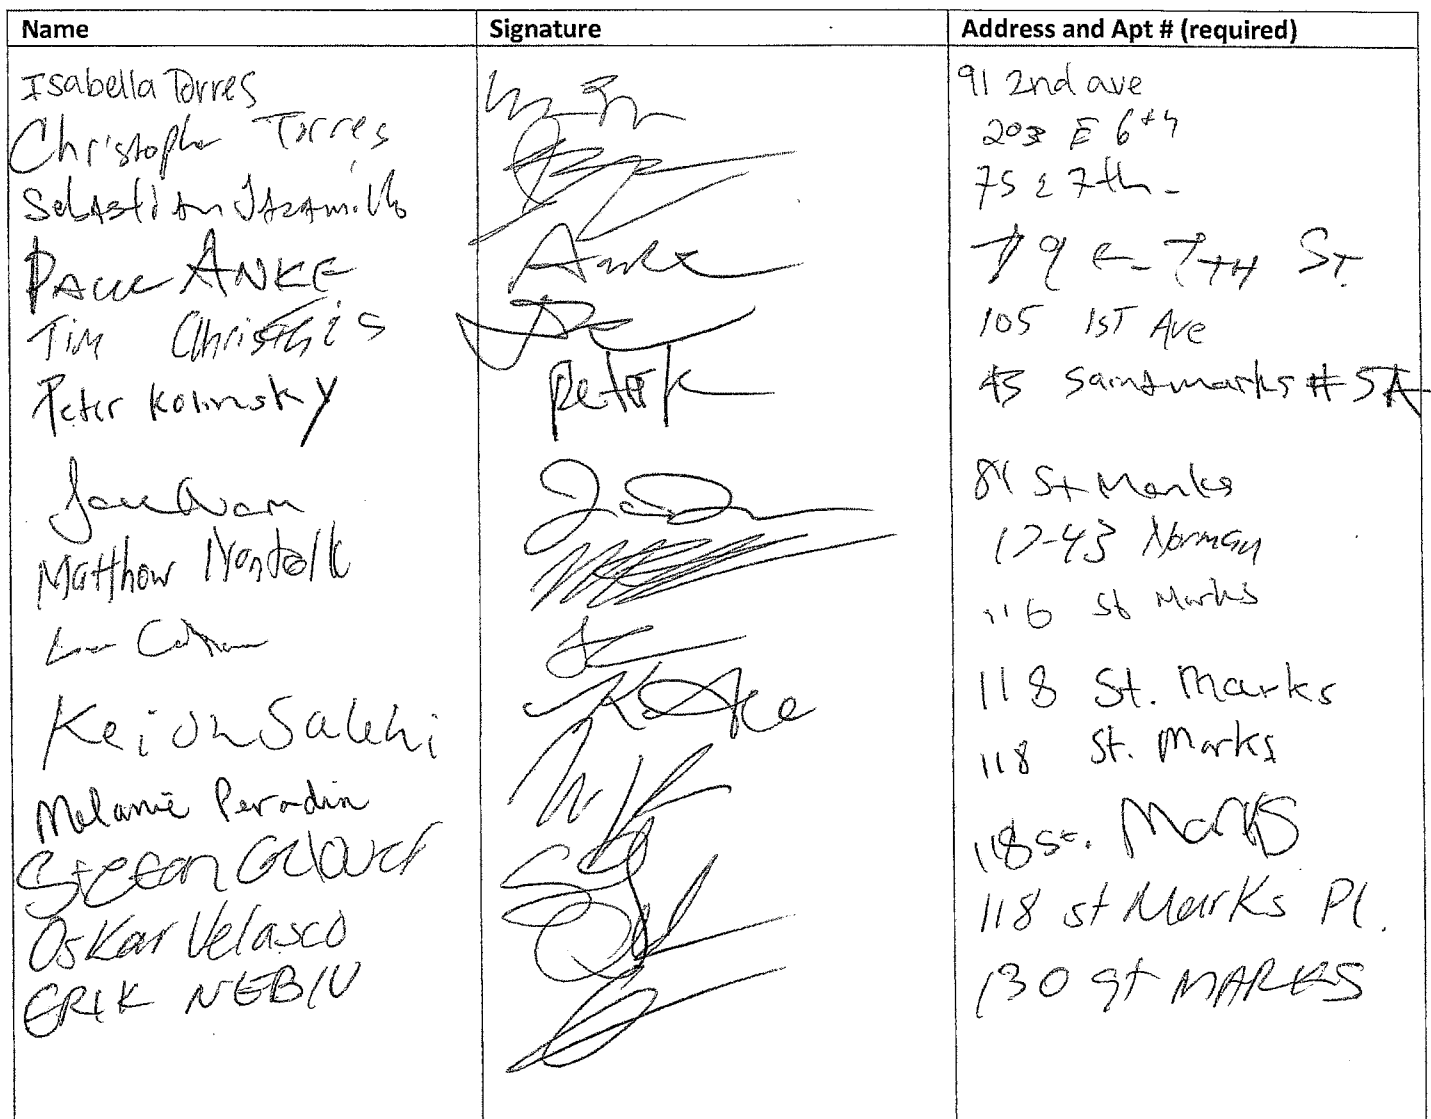 Name Signature Address and Apt # (required)
Isabella Torres 91 2nd ave
Christopher Torres 203 E 6th
Sebastian Jaramillo 75 E 7th
PAUL ANKE Anke 79 E 7TH ST
Tim Christhis 105 1ST Ave
Peter Kolinsky 43 Saint marks # 5A
81 St Marks
Matthew 17-43 Norman
116 St Marks
Keion Salehi 118 St. Marks
Melanie Peradin 118 St. Marks
Stefan 118 St. Marks
Oskar Velasco 118 st Marks Pl.
ERIK NEBIU 130 st MARKS